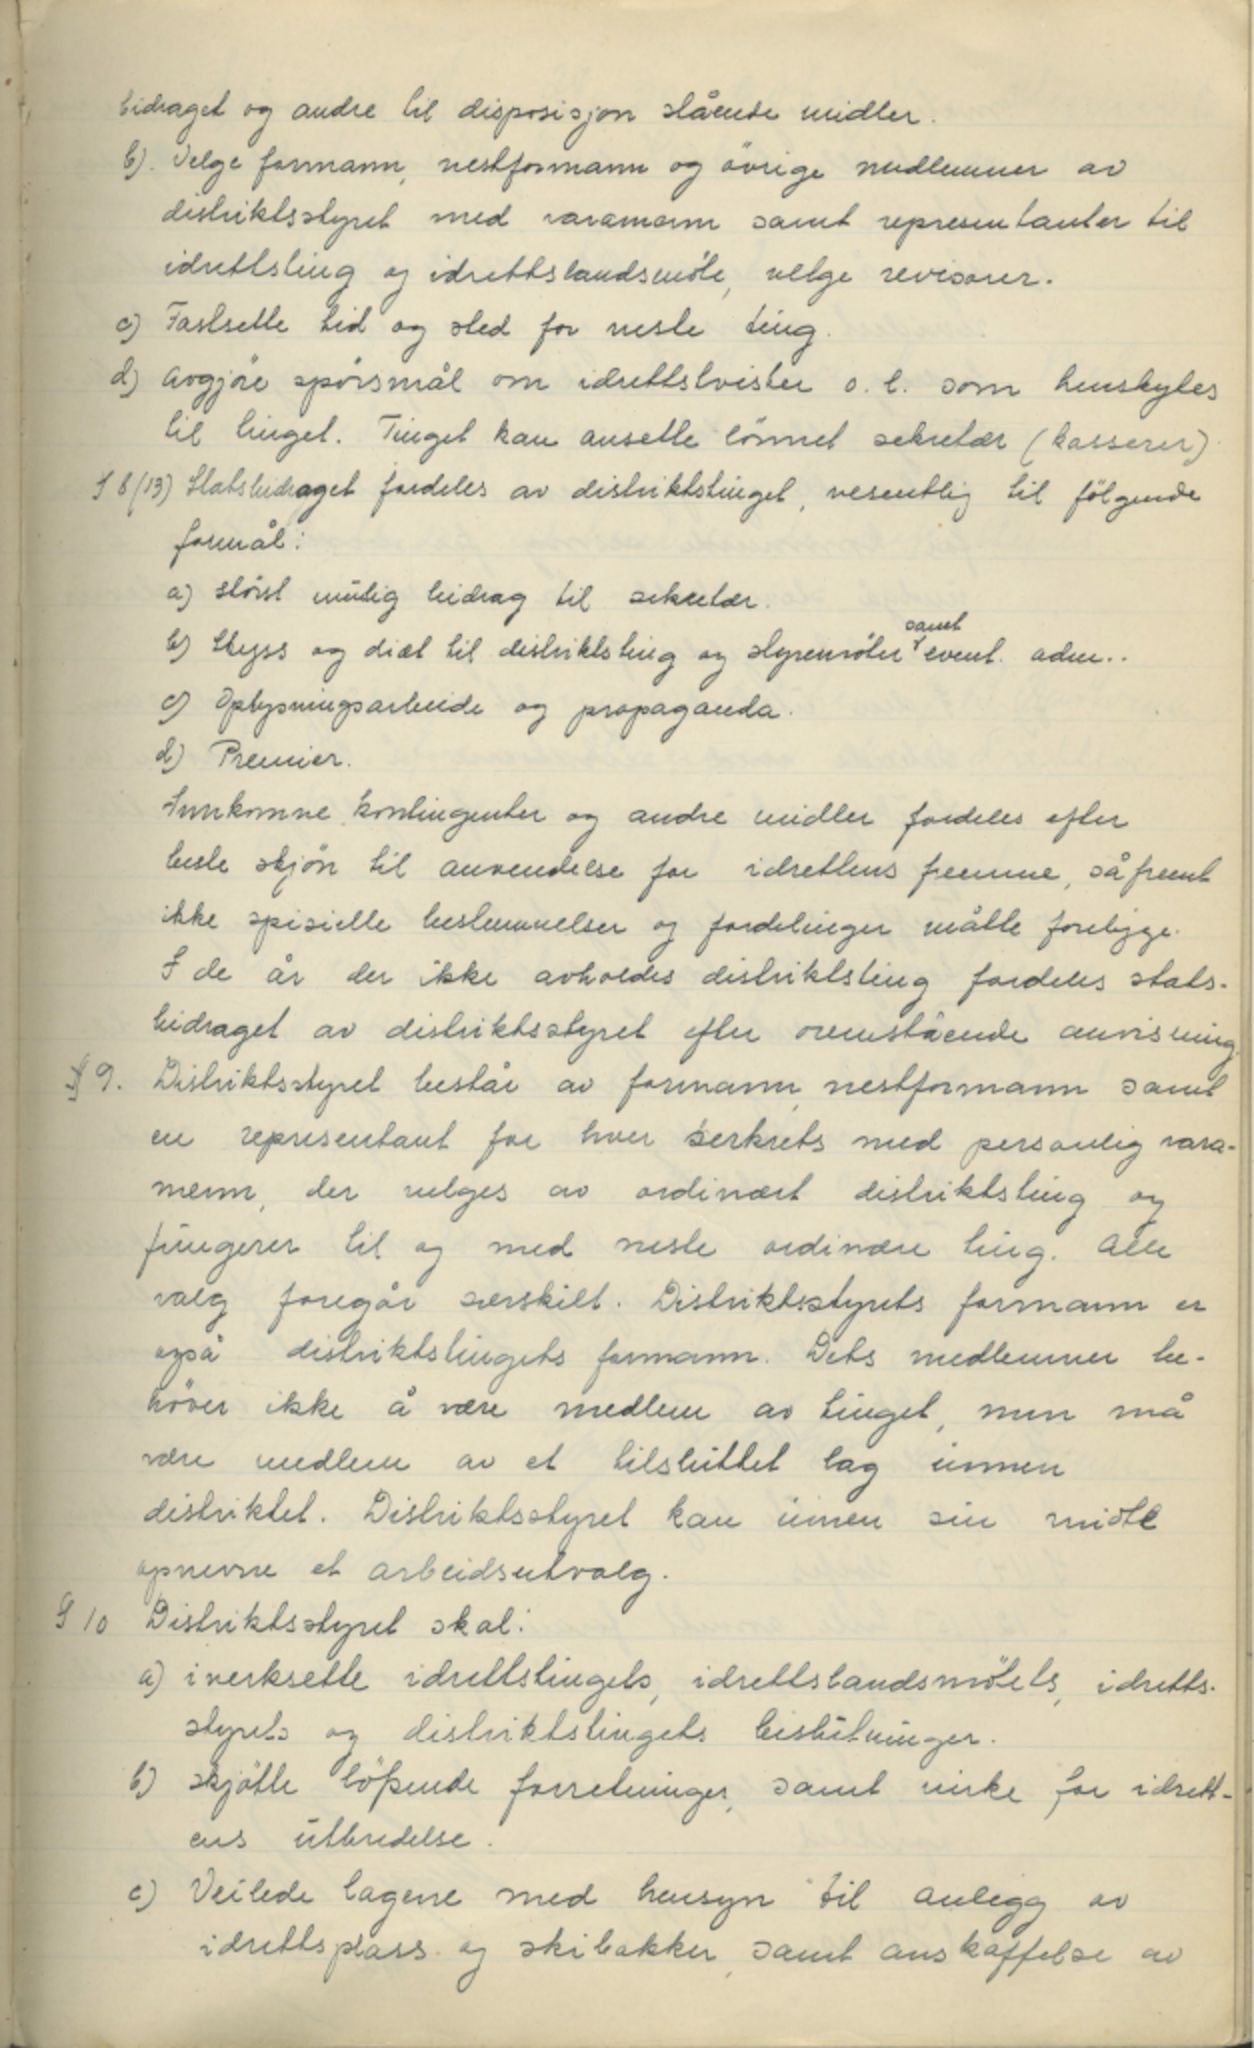 bidraget og andre til disposisjon stående midler.
b). Velge formann, nestformann og övrige medlemmer av
distriktsstyret med varamenn samt representanter til
idrettsting og idrettslandsmöte, velge revisorer.
c) Fastsette tid og sted for neste ting.
d) Avgjöre spörsmål om idrettstvister o. l. som henskytes
til tinget. Tinget kan ansette lönnet sekretær (kasserer).
§ 8 (13) Statsbidraget fordeles av distriktstinget, vesentlig til fölgende
formål:
a) störst mulig bidrag til sekretær.
b) Skyss og diæt til distriktsting og styremöter samt event. adm..
c) Oplysningsarbeide og propaganda.
d) Premier.
Innkomne kontingenter og andre midler fordeles efter
beste skjön til anvendelse for idrettens fremme, såfremt
ikke spisielle bestemmelser og fordelinger måtte foreligge.
I de år der ikke avholdes distriktsting fordeles stats-
bidraget av distriktsstyret efter ovenstående anvisning.
§ 9. Distriktsstyret består av formann, nestformann samt
en representant for hver særkrets med personlig vara-
menn, der velges av ordinært distriktsting og
fungerer til og med neste ordinære ting. Alle
valg foregår særskilt. Distriktsstyrets formann er
også distriktstingets formann. Dets medlemmer be-
höver ikke å være medlem av tinget, men må
være medlem av et tilsluttet lag innen
distriktet. Distriktsstyret kan innen sin midte
opnevne et arbeidsutvalg.
§ 10 Distriktsstyret skal:
a) iverksette idrettstingets, idrettslandsmötets, idretts-
styrets og distriktstingets beslutninger.
b) skjötte löpende forretninger, samt virke for idrett-
ens utbredelse.
c) Veilede lagene med hensyn til anlegg av
idrettsplass og skibakker, samt anskaffelse av